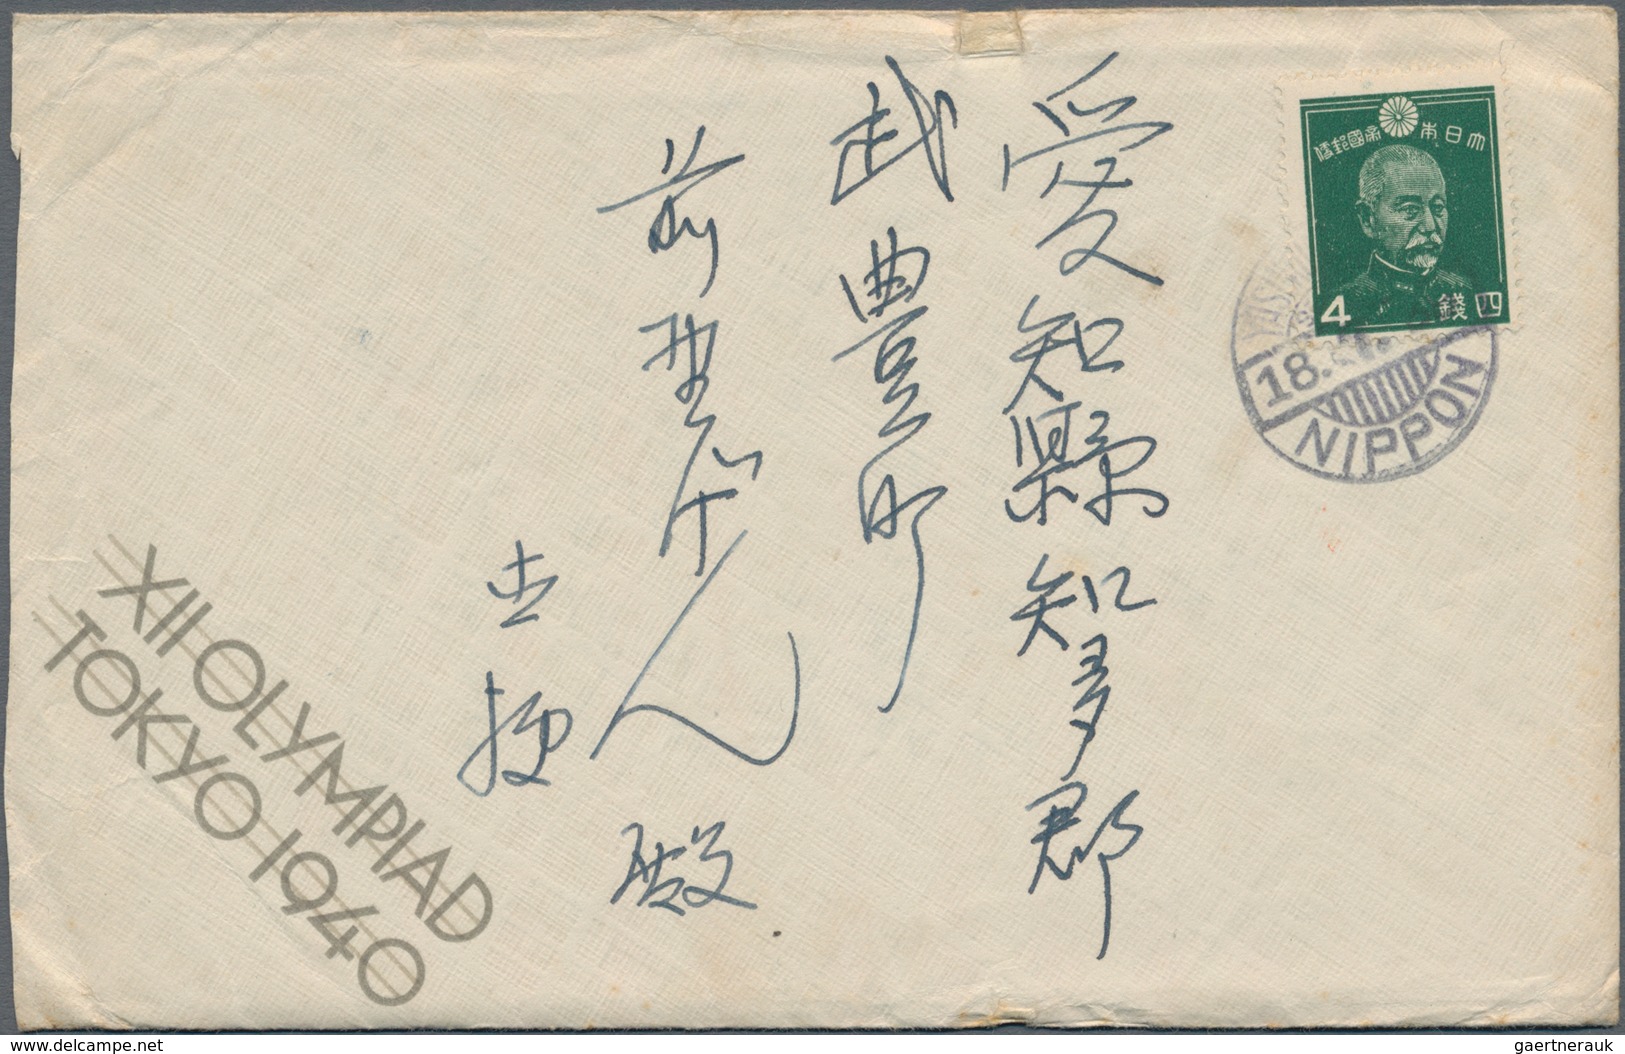 愛知縣知多郡
武豊町
前野
殿
大日本帝國郵便
4
四錢
18.
NIPPON
XII OLYMPIAD
TOKYO 1940
www.delcampe.net
gaertnerauk